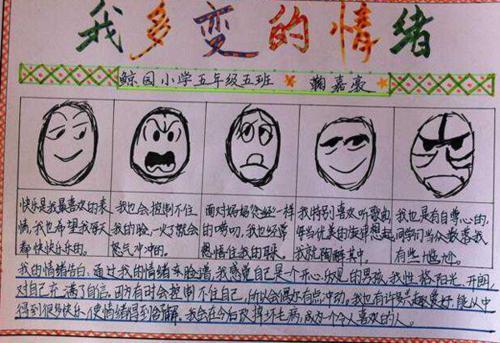 我多变的情绪
鲸园小学五年级五班 鞠嘉豪
快乐是我最喜欢的表
情,我也希望我每天
都快快乐乐的。
我也会控制不住
我的脸,一火了就会
怒气冲冲的。
面对妈妈 一样
的唠叨,我也经常
想捂住我的耳朵。
我特别喜欢听歌曲
每当优美的旋律想起
我就陶醉其中。
我也是有自尊心的。
同学们当众数落我
有些尴尬。
我的情绪告白:通过我的情绪来脸谱,我感觉自己是个开心乐观的男孩,我性格阳光、开朗,
对自己充满了自信。因为有时会控制不住自己,所以会偶尔有点冲动。我也有许多兴趣爱好,能从中
得到很多快乐,使情绪得到 。我会在今后改掉坏毛病,成为一个令人喜欢的人。